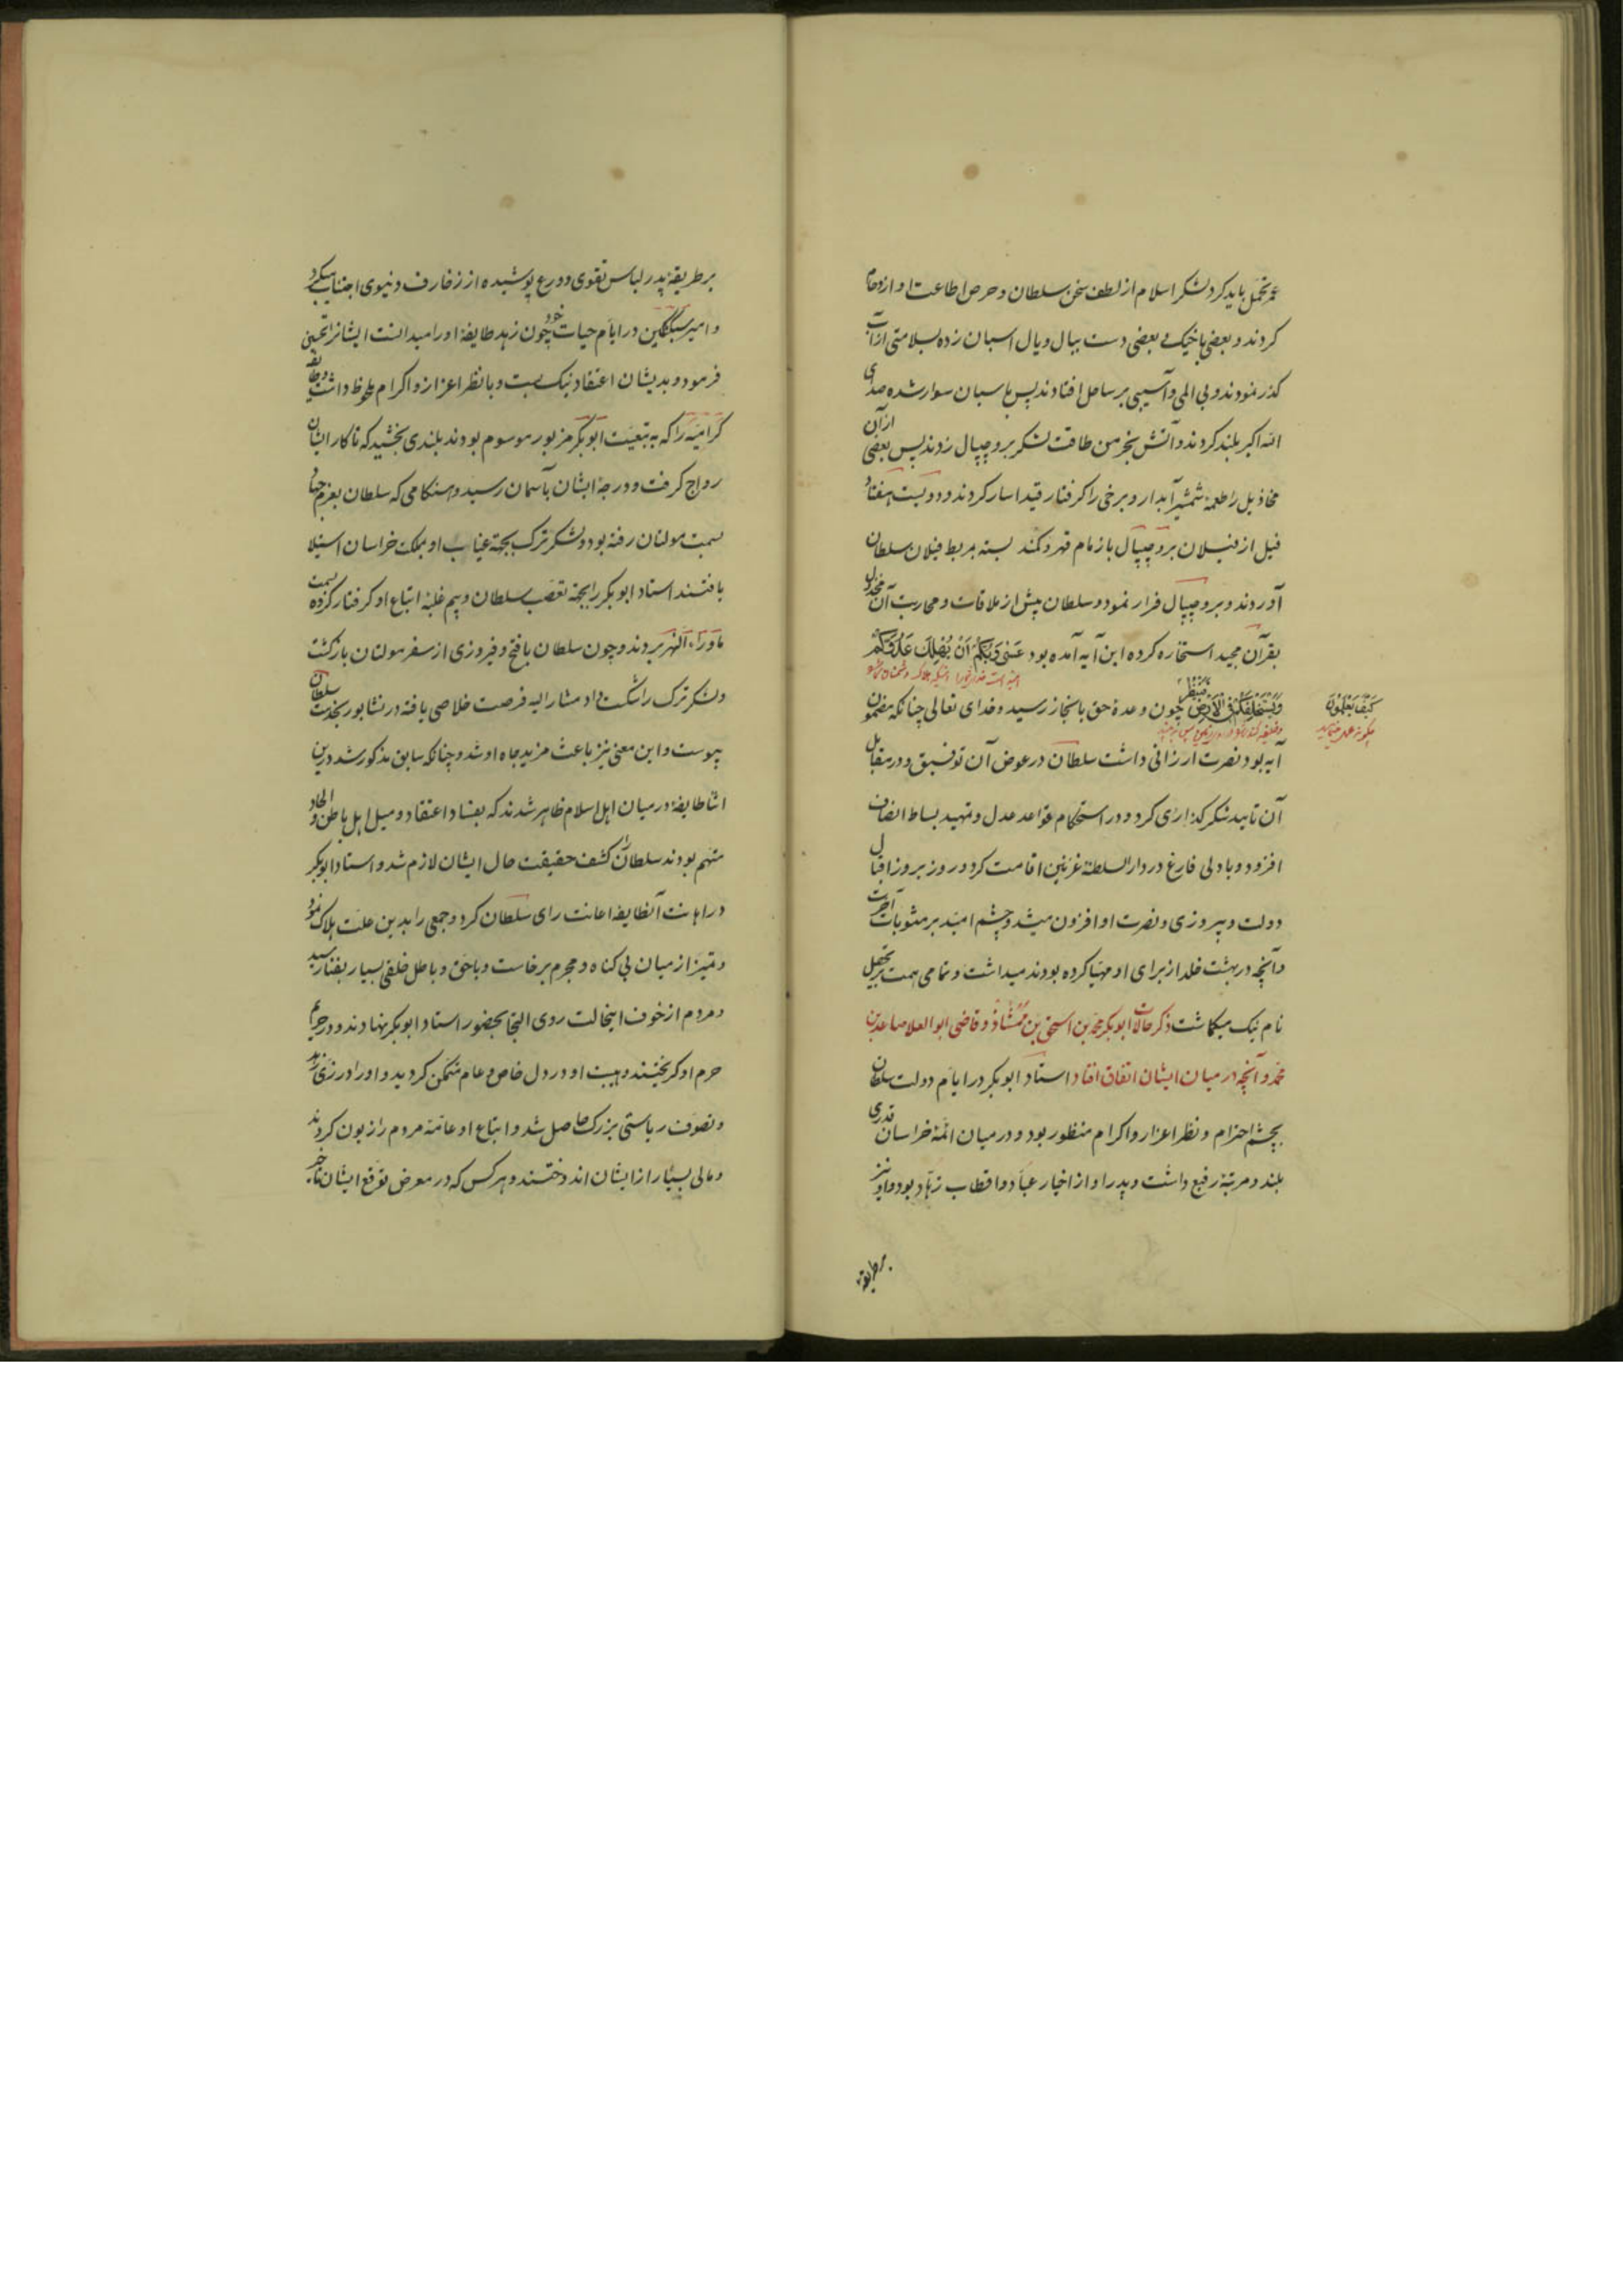 عمر تحمل باید کرد لشکر اسلام از لطف سخن سلطان و حرص اطاعت او ازدحام
کردند و بعضی با خیک و بعضی دست بیال و یال اسبان زده بسلامتی ازآب
کذر نمودند و بی المی و آسیبی بر ساحل افتادند پس باسبان سوار شده صدی
الله اکبر بلند کردند و آتش بخرمن طاقت لشکر بروجیپال زدند پس بعضی ازآن
مخاذیل را طعمهٔ شمشیر آبدار و برخی را کرفتار قید اسار کردند و دویست هفتاد
فیل از فیلان بروجیپال بازمام قهر و کمند بسته مربط فیلان سلطان
آوردند و بروجیپال فرار نمود و سلطان پیش از ملاقات و محاربت آن مخذول
بقرآن مجید استخاره کرده این آیه آمده بود عَسٰی رَبُّکُمْ اَنْ یُهْلِکَ عَدُوَّکُمْ
وَیَسْتَخْلِفَکُمْ فِی الْاَرْضِ فَیَنْظُرَ چون وعدهٔ حق بانجاز رسید و خدای تعالی چنانکه مضمون
کَیْفَ تَعْمَلُونَ
چکونه عمل مینمایید
آیه بود نصرت ارزانی داشت سلطان در عوض آن توفیق و در مقابل
آن تایید شکر کذاری کرد و در استحکام قواعد عدل و تمهید بساط انصاف
افزود و بادلی فارغ در دار السلطنهٔ غزنین اقامت کرد و روز بروز اقبال
دولت و پیروزی و نصرت او افزون میشد و چشم امید بر مثوبات آخرت
و آنچه در بهشت خلد از برای او مهیا کرده بودند میداشت و تمامی همت بر تحصیل
نام نیک میکماشت ذکر حالات ابوبکر محمد بن اسحق بن ممشاذ و قاضی ابو العلا صاعد بن
محمد و آنچه در میان ایشان اتفاق افتاد استاد ابوبکر در ایام دولت سلطان
بچشم احترام و نظر اعزاز و اکرام منظور بود و در میان ائمهٔ خراسان قدری
بلند و مرتبهٔ رفیع داشت و پدر او از اخیار عباد و اقطاب زهاد بود و او نیز
برطریقه
بر طریقهٔ پدر لباس تقوی و ورع پوشیده از زخارف دنیوی اجتناب میکرد
و امیر سبکتکین در ایام حیات خود چون زهد طایفهٔ او را میدانست ایشانرا تحسین
فرمود و بدیشان اعتقاد نیک بست و با نظر اعزاز و اکرام ملحوظ داشت و طایفه
کرامیه را که به تبعیت ابوبکر مزبور موسوم بودند بلندی بخشید که تا کار ایشان
رواج کرفت و درجهٔ ایشان بآسمان رسید و هنکامی که سلطان بعزم جهاد
بسمت مولتان رفته بود و لشکر ترک بجهة غیاب او بملکت خراسان استیلا
یافتند استاد ابوبکر را بجهة تعصب سلطان و بیم غلبهٔ اتباع او کرفتار کرده بسمت
ماوراء النهر بردند و چون سلطان بافتح و فیروزی از سفر مولتان بازکشت
و لشکر ترک را شکست داد مشار الیه فرصت خلاصی یافته در نشابور بخدمت سلطان
پیوست و این معنی نیز باعث مزید جاه او شد و چنانکه سابق مذکور شد درین
اثنا طایفهٔ در میان اهل اسلام ظاهر شدند که بفساد اعتقاد و میل اهل باطن و الحاد
متهم بودند سلطان را کشف حقیقت حال ایشان لازم شد و استاد ابوبکر
در اهانت آنطایفه اعانت رای سلطان کرد و جمعی را بدین علت هلاک نمود
و تمیز از میان بی کناه و مجرم برخاست و باحق و باطل خلقی بسیار بفنا رسید
و مردم از خوف اینحالت روی التجا بحضور استاد ابوبکر نهادند و در حریم
حرم او کریختند و هیبت او در دل خاص و عام متمکن کردید و او را در زی زهد
و تصوف ریاستی بزرک حاصل شد و اتباع او عامهٔ مردم را زبون کردند
و مالی بسیار از ایشان اندوختند و هر کس که در معرض توقع ایشان تاخر